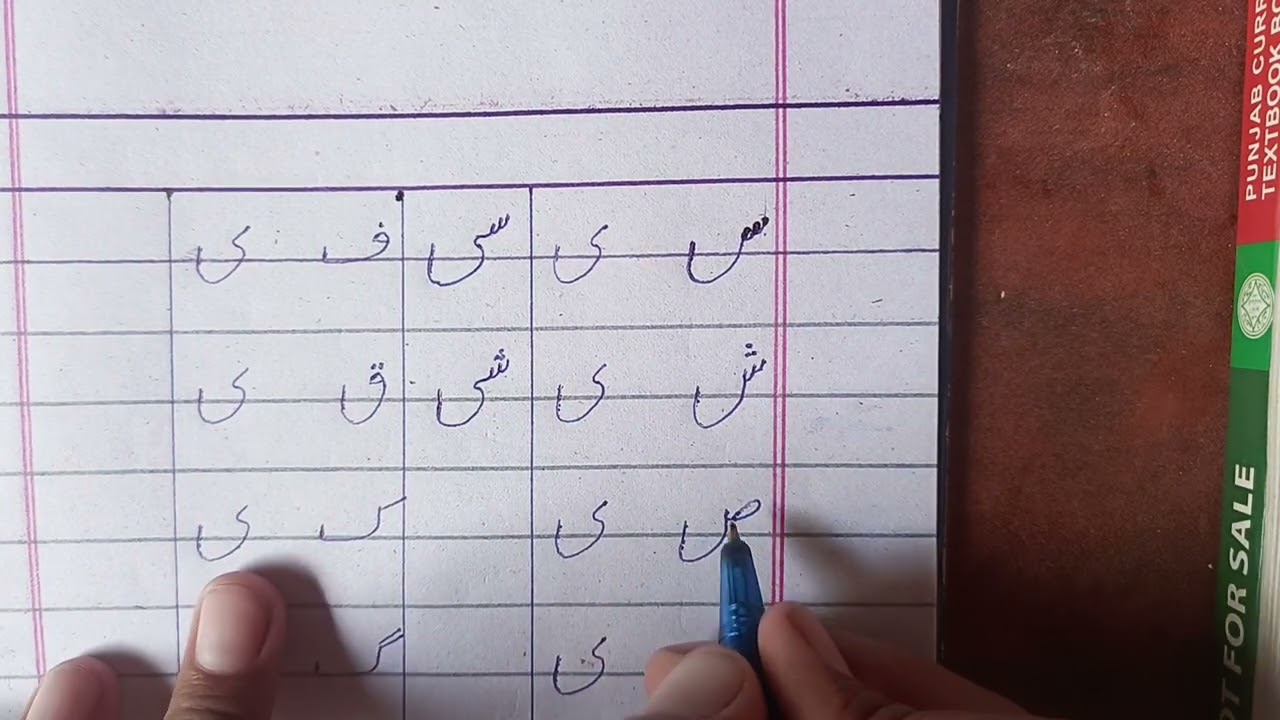 س ی سی ف ی
ش ی شی ق ی
ص ی ک ی
ی گ
PUNJAB CURR
TEXTBOOK BO
OT FOR SALE